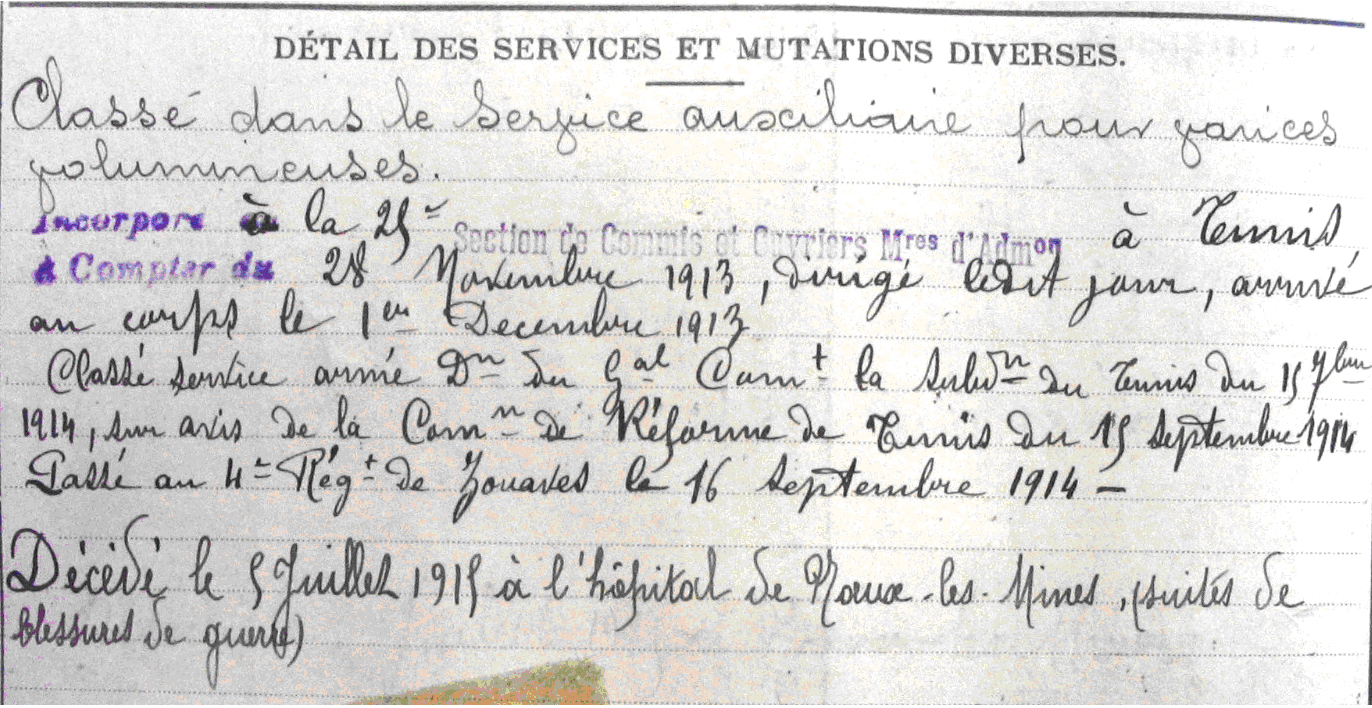 DÉTAIL DES SERVICES ET MUTATIONS DIVERSES.
Classé dans le service auxiliaire pour varices
volumineuses.
Incorporé à la 25e Section de Commis et Ouvriers Mres d'Admon à Tunis
à Compter du 28 Novembre 1913, dirigé ledit jour, arrivé
au corps le 1er Décembre 1913
Classé service armé Dn du Gal Comt la Subdn du Tunis du 15 7bre
1914, sur avis de la Comn de Réforme de Tunis du 15 septembre 1914
Passé au 4e Régt de Zouaves le 16 septembre 1914 –
Décédé le 5 Juillet 1915 à l'hôpital de Nœux-les-Mines, (suites de
blessures de guerre)